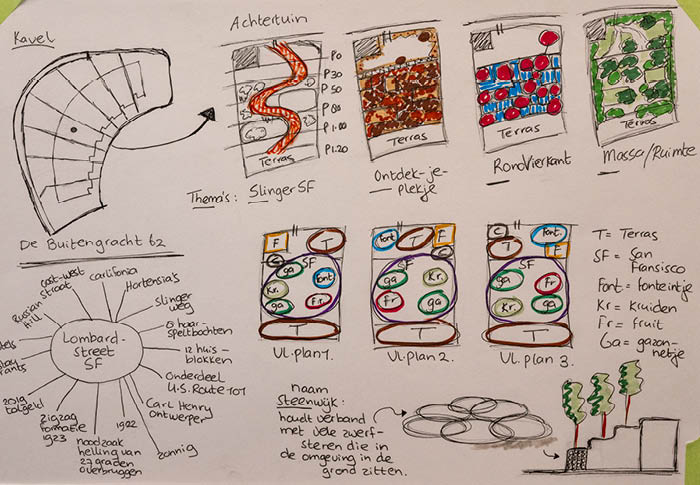 Kavel
Achtertuin
P0
P30
P50
P80
P1.00
P1.20
Terras
Terras
Terras
Terras
Thema's: SlingerSF
Ontdek-je-
plekje
RondVierkant
Massa/Ruimte
De Buitengracht 62
Lombard-
street
SF
east-west
straat
Carlifonia
Hortensia's
slinger
weg
8 haar
speltbochten
12 huis-
blokken
Onderdeel
U.S. Route 101
Carl Henry
ontwerper
zonnig
1922
noodzaak
helling van
27 graden
overbruggen
zigzag
formatie
1923
2019
tolgeld
Russian
Hill
F
T
C
SF
ga
font
Kr.
Fr.
ga
T
Vl.plan 1.
font
T
F
C
SF
ga
Kr.
Fr
ga
T
Vl.plan 2.
C
T
font.
F
SF
ga
Fr
Kr.
ga
T
Vl.plan 3.
T = Terras
SF = San
Fransisco
Font = fonteintje
Kr = kruiden
Fr = fruit
Ga = gazon-
netje
naam
steenwijk:
houdt verband
met vele zwerf-
steren die in
de omgeving in de
grond zitten.